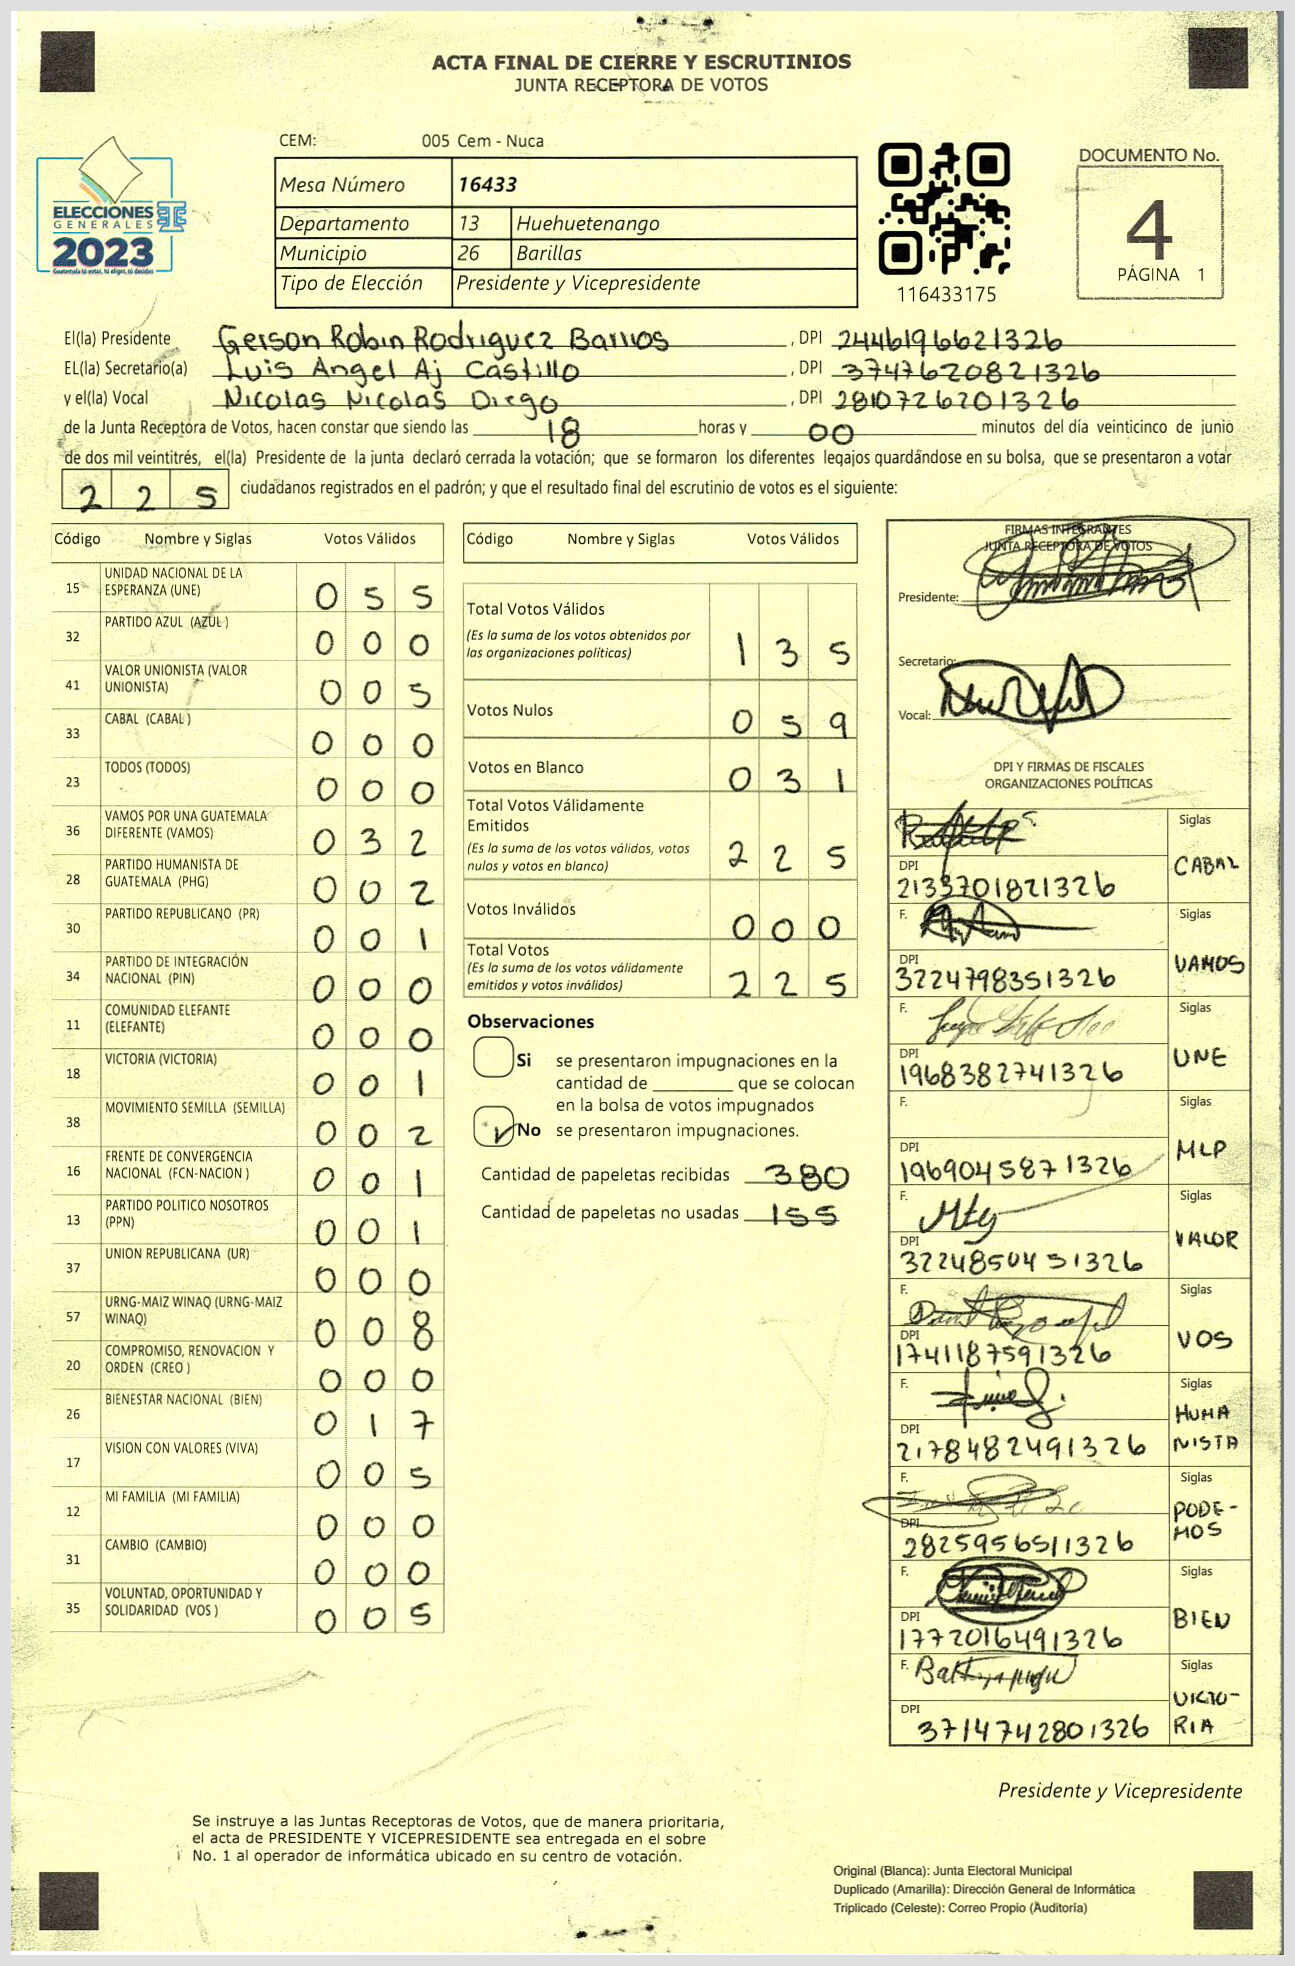 ACTA FINAL DE CIERRE Y ESCRUTINIOS
JUNTA RECEPTORA DE VOTOS
ELECCIONES
GENERALES
2023
Guatemala tú votas, tú eliges, tú decides
CEM: 005 Cem - Nuca
Mesa Número 16433
Departamento 13 Huehuetenango
Municipio 26 Barillas
Tipo de Elección Presidente y Vicepresidente
116433175
DOCUMENTO No.
4
PÁGINA 1
El(la) Presidente Gerson Robin Rodriguez Barrios, DPI 2446196621326
EL(la) Secretario(a) Luis Angel Aj Castillo, DPI 3747620821326
y el(la) Vocal Nicolas Nicolas Diego, DPI 2810726201326
de la Junta Receptora de Votos, hacen constar que siendo las 18 horas y 00 minutos del día veinticinco de junio
de dos mil veintitrés, el(la) Presidente de la junta declaró cerrada la votación; que se formaron los diferentes legajos guardándose en su bolsa, que se presentaron a votar
225 ciudadanos registrados en el padrón; y que el resultado final del escrutinio de votos es el siguiente:
Código Nombre y Siglas Votos Válidos
15 UNIDAD NACIONAL DE LA ESPERANZA (UNE) 055
32 PARTIDO AZUL (AZUL) 000
41 VALOR UNIONISTA (VALOR UNIONISTA) 005
33 CABAL (CABAL) 000
23 TODOS (TODOS) 000
36 VAMOS POR UNA GUATEMALA DIFERENTE (VAMOS) 032
28 PARTIDO HUMANISTA DE GUATEMALA (PHG) 002
30 PARTIDO REPUBLICANO (PR) 001
34 PARTIDO DE INTEGRACIÓN NACIONAL (PIN) 000
11 COMUNIDAD ELEFANTE (ELEFANTE) 000
18 VICTORIA (VICTORIA) 001
38 MOVIMIENTO SEMILLA (SEMILLA) 002
16 FRENTE DE CONVERGENCIA NACIONAL (FCN-NACION) 001
13 PARTIDO POLITICO NOSOTROS (PPN) 001
37 UNION REPUBLICANA (UR) 000
57 URNG-MAIZ WINAQ (URNG-MAIZ WINAQ) 008
20 COMPROMISO, RENOVACION Y ORDEN (CREO) 000
26 BIENESTAR NACIONAL (BIEN) 017
17 VISION CON VALORES (VIVA) 005
12 MI FAMILIA (MI FAMILIA) 000
31 CAMBIO (CAMBIO) 000
35 VOLUNTAD, OPORTUNIDAD Y SOLIDARIDAD (VOS) 005
Código Nombre y Siglas Votos Válidos
Total Votos Válidos 135
(Es la suma de los votos obtenidos por
las organizaciones políticas)
Votos Nulos 059
Votos en Blanco 031
Total Votos Válidamente
Emitidos 225
(Es la suma de los votos válidos, votos
nulos y votos en blanco)
Votos Inválidos 000
Total Votos 225
(Es la suma de los votos válidamente
emitidos y votos inválidos)
Observaciones
Si se presentaron impugnaciones en la
cantidad de ________ que se colocan
en la bolsa de votos impugnados
No se presentaron impugnaciones.
Cantidad de papeletas recibidas 380
Cantidad de papeletas no usadas 155
FIRMAS INTEGRANTES
JUNTA RECEPTORA DE VOTOS
Presidente:
Secretario:
Vocal:
DPI Y FIRMAS DE FISCALES
ORGANIZACIONES POLÍTICAS
Siglas
CABAL
DPI
2133701821326
F. Siglas
VAMOS
DPI
3224798351326
F. Siglas
UNE
DPI
1968382741326
F. Siglas
MLP
DPI
1969045871326
F. Siglas
VALOR
DPI
3224850451326
F. Siglas
VOS
DPI
1741187591326
F. Siglas
HUMA
NISTA
DPI
2178482491326
F. Siglas
PODE-
MOS
DPI
2825956511326
F. Siglas
BIEN
DPI
1772016491326
F. Siglas
VICTO-
RIA
DPI
3714742801326
Presidente y Vicepresidente
Se instruye a las Juntas Receptoras de Votos, que de manera prioritaria,
el acta de PRESIDENTE Y VICEPRESIDENTE sea entregada en el sobre
No. 1 al operador de informática ubicado en su centro de votación.
Original (Blanca): Junta Electoral Municipal
Duplicado (Amarilla): Dirección General de Informática
Triplicado (Celeste): Correo Propio (Auditoría)